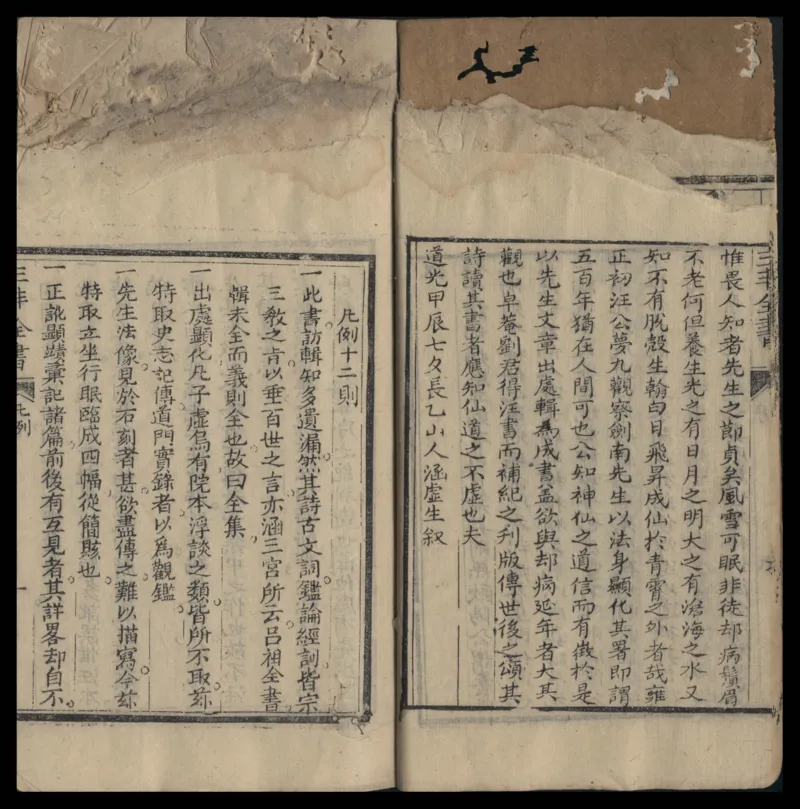 三丰全書
惟畏人知者先生之節貞矣風雪可眠非徒却病鬚眉
不老何但養生光之有日月之明大之有滄海之水又
知不有脫殼生翰白日飛昇成仙於青霄之外者哉雍
正初汪公夢九觀察劍南先生以法身顯化其署即謂
五百年猶在人間可也公知神仙之道信而有徵於是
以先生文章出處輯為成書蓋欲與却病延年者大其
觀也卓菴劉君得汪書而補紀之刊版傳世後之頌其
詩讀其書者應知仙道之不虛也夫
道光甲辰七夕長乙山人涵虛生叙
凡例十二則
一此書訪輯知多遺漏然其詩古文詞鑑論經訓皆宗
三教之旨以垂百世之言亦涵三宮所云呂祖全書
輯未全而義則全也故曰全集
一出處顯化凡子虛烏有院本浮談之類皆所不取茲
特取史志記傳道門實錄者以為觀鑑
一先生法像見於石刻者甚欲盡傳之難以描寫今茲
特取立坐行眠臨成四幅從簡賅也
一正訛顯蹟彙記諸篇前後有互見者其詳畧却自不
三丰全書 凡例 一